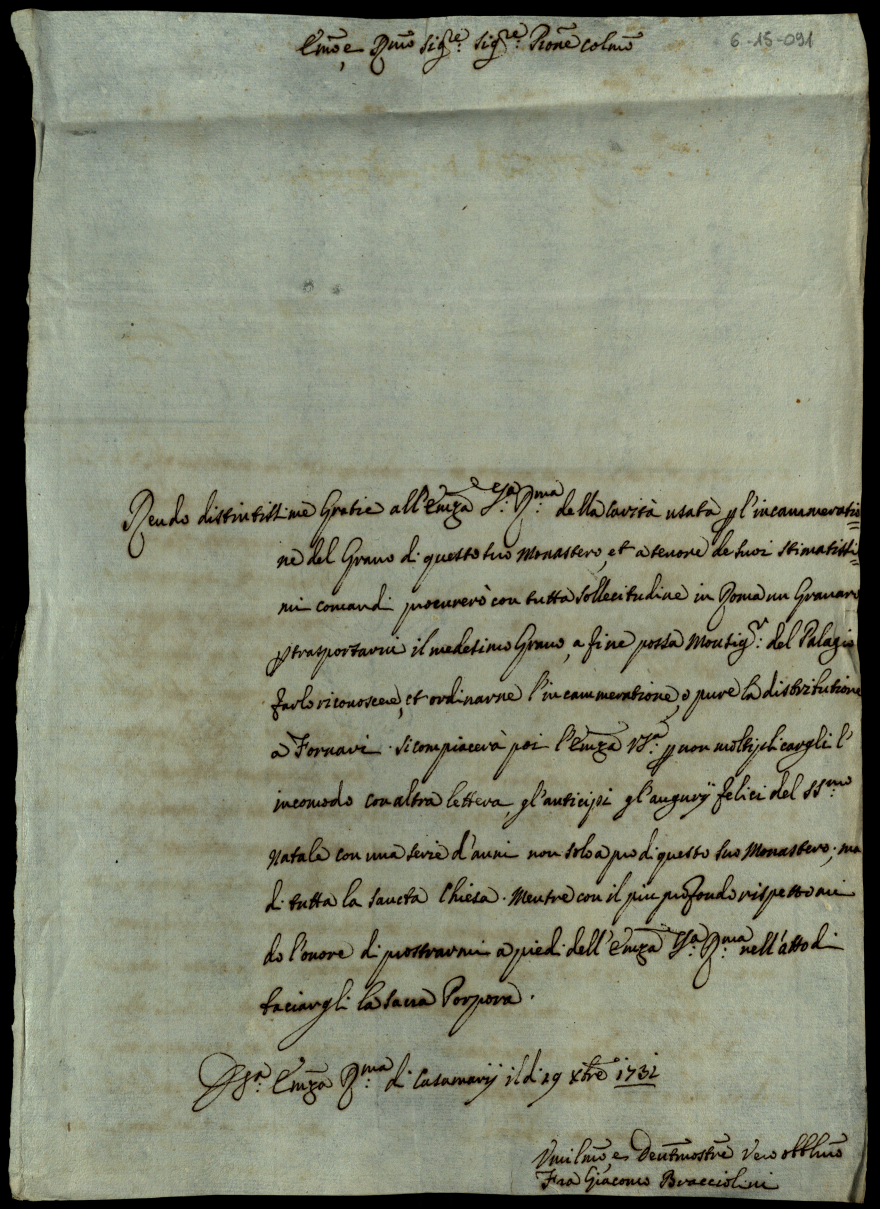 Emo, e Rmo Sigre. Sigre. Prone Colmo
6-15-091
Rendo distintissime Gratie all'Emza Va. Rma. della Carità usata p l'incammeratio=
ne del Grano di questo suo Monastero, et a tenore de suoi stimatissi=
mi comandi procurerò con tutta sollecitudine in Roma un Granaro
p trasportarvi il medesimo Grano, a fine possa Monsigr. del Palagio
farlo riconoscere, et ordinarne l'incammeratione, o pure la distributione
a Fornari. Si compiacerà poi l'Emza Va. p non moltiplicargli l'
incomodo con altra lettera, gl'anticipi gl'augurij felici del SSmo.
Natale con una serie d'anni non solo a pro di questo suo Monastero, ma
di tutta la Sancta Chiesa. Mentre con il piu profondo rispetto mi
do l'onore di prostrarmi a piedi dell'Emza Va. Rma. nell'atto di
baciargli la Sacra Porpora.
Emza Rma. di Casamarij il di 19 Xbre 1731
Vmilmo, e Devotmo Servre Vero obblmo
Fra Giacomo Bracciolini